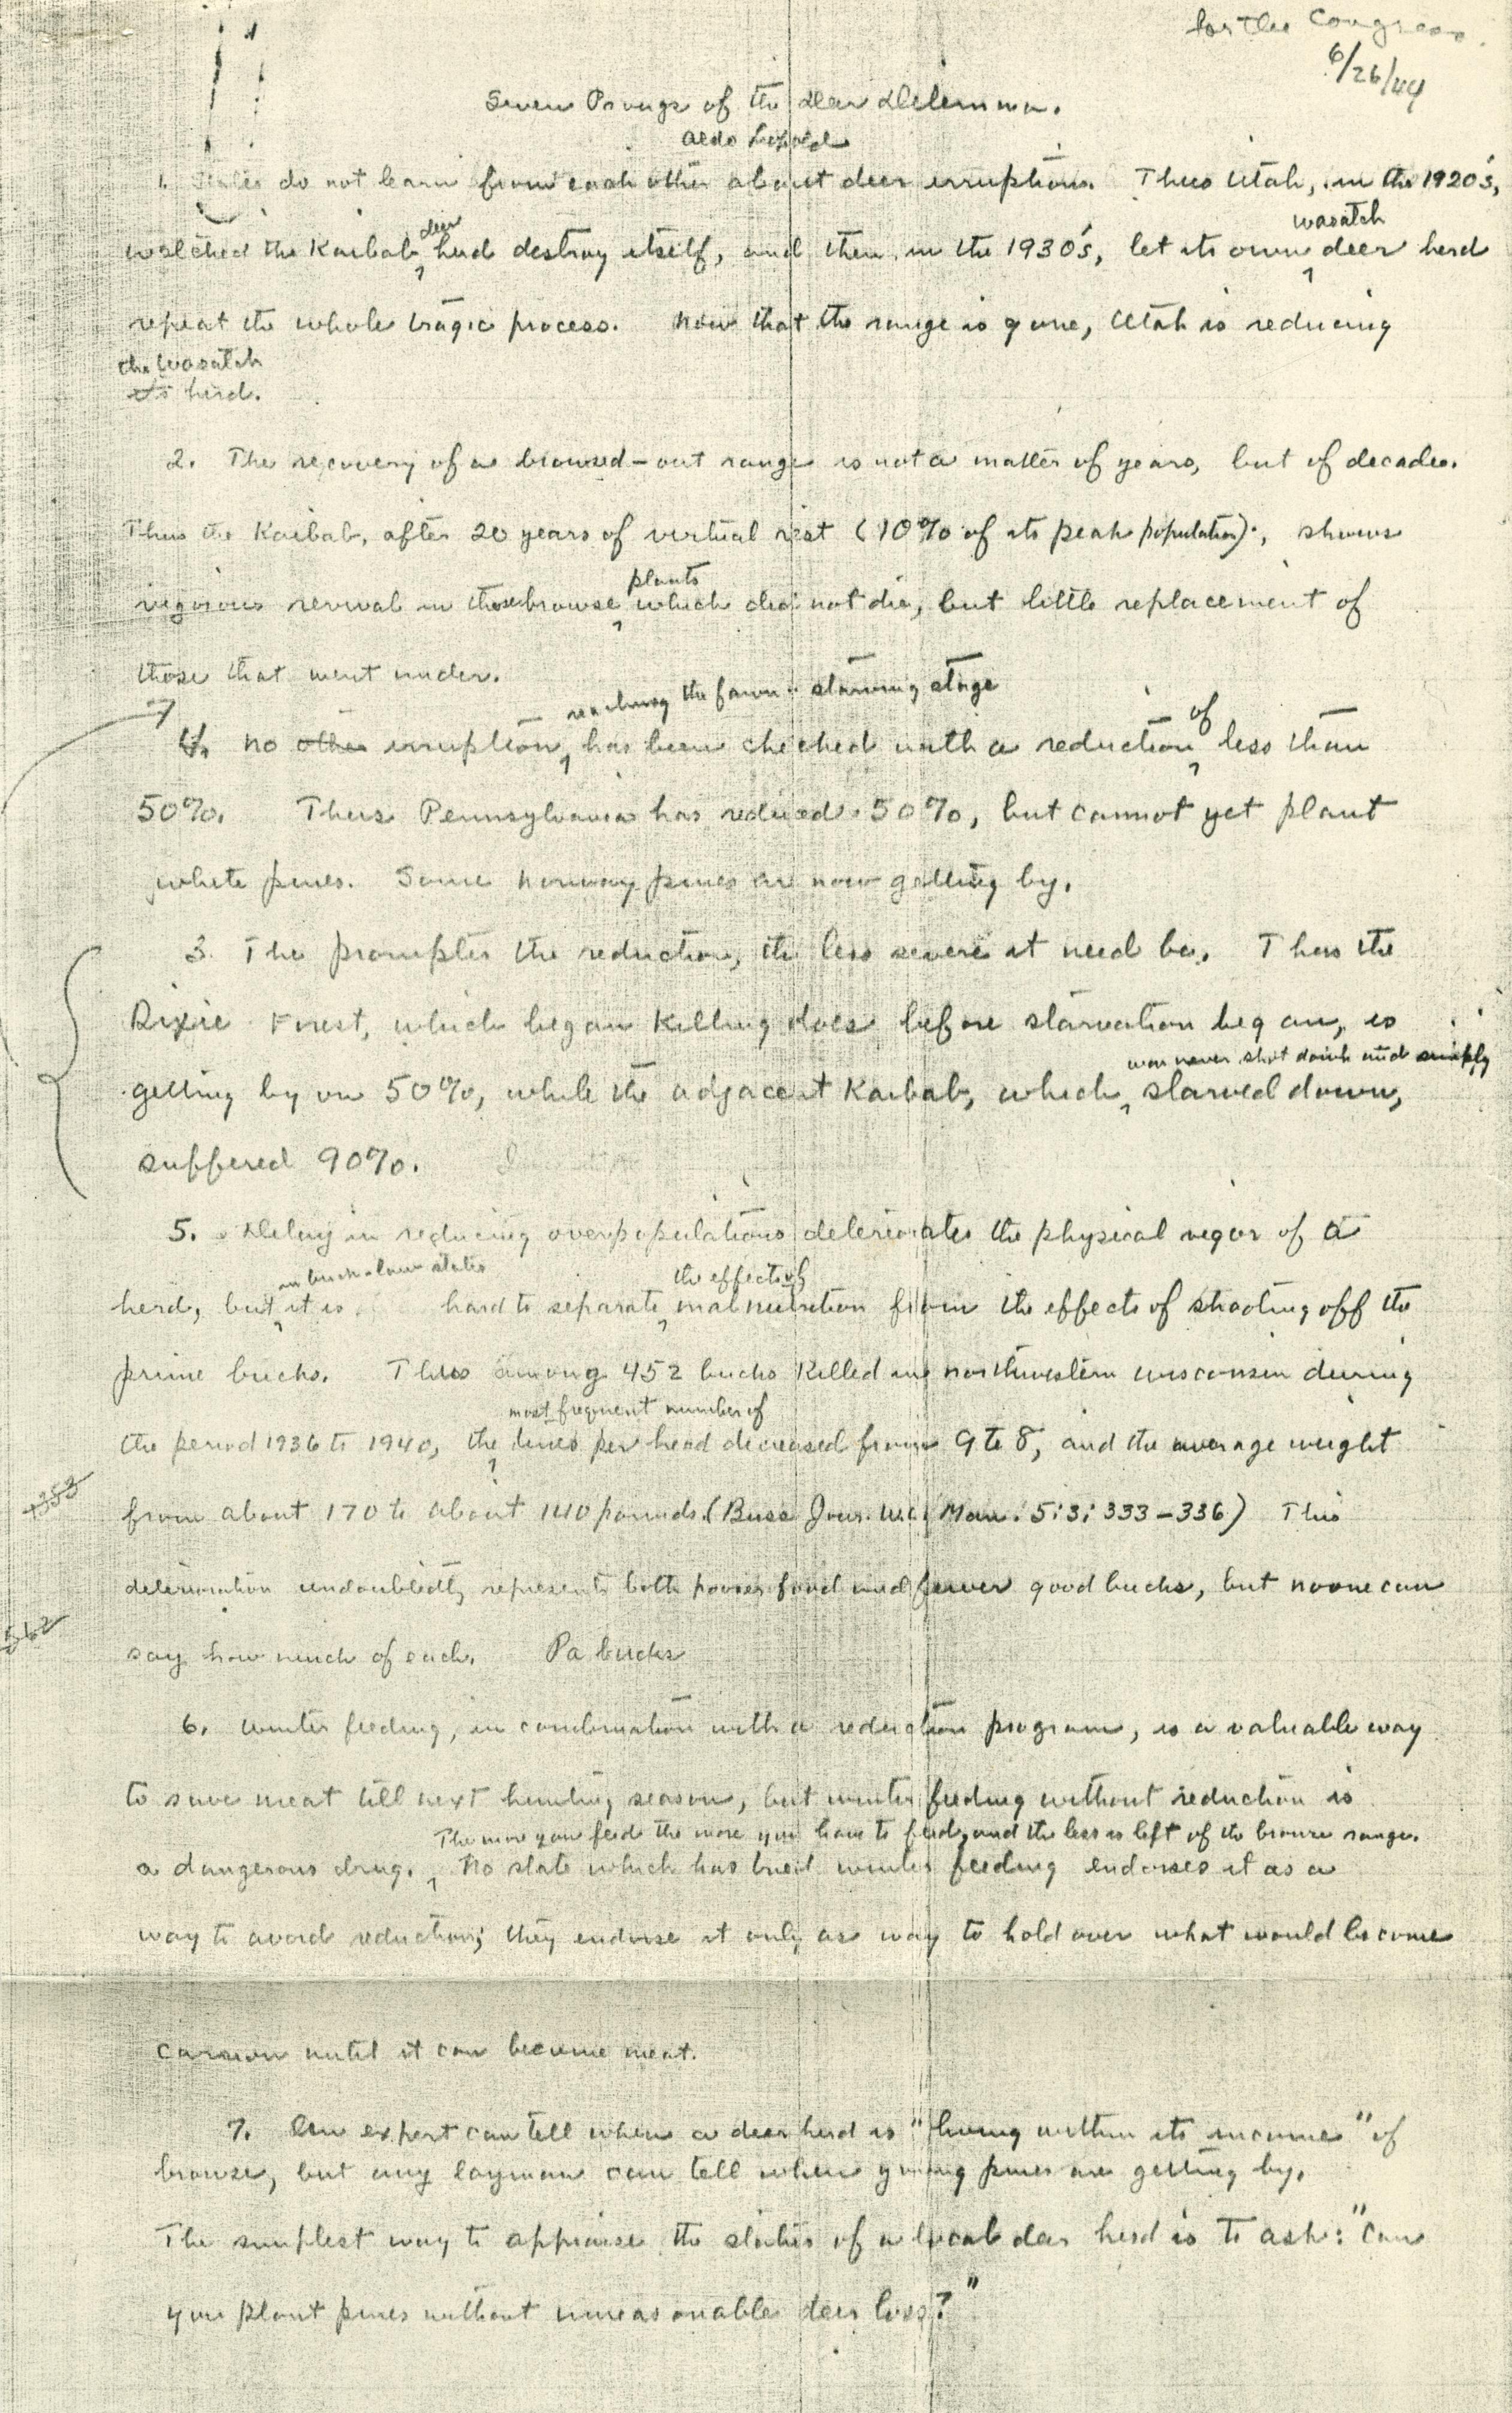 for the Congress
6/26/44
Seven Prongs of the Deer Dilemma.
Aldo Leopold
1. States do not learn from each other about deer irruptions. Thus Utah, in the 1920's,
deer
wasatch
watched the Kaibab herd destroy itself, and then, in the 1930's, let its own deer herd
repeat the whole tragic process. Now that the range is gone, Utah is reducing
the Wasatch
its herd.
2. The recovery of a browsed-out range is not a matter of years, but of decades.
Thus the Kaibab, after 20 years of virtual rest (10% of its peak population), shows
plants
vigorous revival in those browse which did not die, but little replacement of
those that went under.
reaching the fawn-starving stage
of
4. No other irruption has been checked with a reduction less than
50%. Thus Pennsylvania has reduced 50%, but cannot yet plant
white pines. Some Norway pines are now getting by.
3. The prompter the reduction, the less severe it need be. Thus the
Dixie Forest, which began killing does before starvation began, is
was never shot down and simply
getting by on 50%, while the adjacent Kaibab, which starved down,
suffered 90%.
5. Delay in reducing overpopulations deteriorates the physical vigor of a
in buck-law states
the effects of
herd, but it is hard to separate malnutrition from the effects of shooting off the
prime bucks. Thus among 452 bucks killed in northwestern Wisconsin during
most frequent number of
the period 1936 to 1940, the tines per head decreased from 9 to 8, and the average weight
+353
from about 170 to about 140 pounds. (Buss Jour. W.L. Man. 5:3:333-336) This
deterioration undoubtedly represents both poorer food and fewer good bucks, but no one can
562
say how much of each. Pa bucks
6. Winter feeding, in combination with a reduction program, is a valuable way
to save meat till next hunting season, but winter feeding without reduction is
The more you feed the more you have to feed, and the less is left of the browse range.
a dangerous drug. No state which has tried winter feeding endorses it as a
way to avoid reduction; they endorse it only as way to hold over what would become
carrion until it can become meat.
7. An expert can tell when a deer herd is "living within its income" of
browse, but any layman can tell when young pines are getting by.
The simplest way to appraise the status of a local deer herd is to ask: "Can
you plant pines without unreasonable deer loss?"